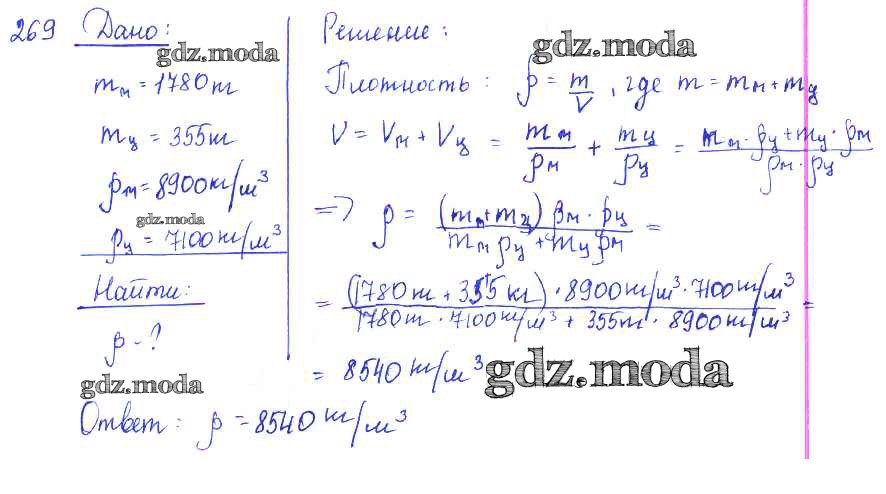 269 Дано:
gdz.moda
mм = 1780 кг
mц = 355 кг
ρм = 8900 кг/м³
gdz.moda
ρц = 7100 кг/м³
Найти:
ρ - ?
gdz.moda
Решение:
gdz.moda
Плотность: ρ = m/V, где m = mм + mц
V = Vм + Vц = mм/ρм + mц/ρц = (mм · ρц + mц · ρм)/(ρм · ρц)
=> ρ = (mм + mц) ρм · ρц / (mм ρц + mц ρм) =
= (1780 кг + 355 кг) · 8900 кг/м³ · 7100 кг/м³ / (1780 кг · 7100 кг/м³ + 355 кг · 8900 кг/м³) =
= 8540 кг/м³
gdz.moda
Ответ: ρ = 8540 кг/м³